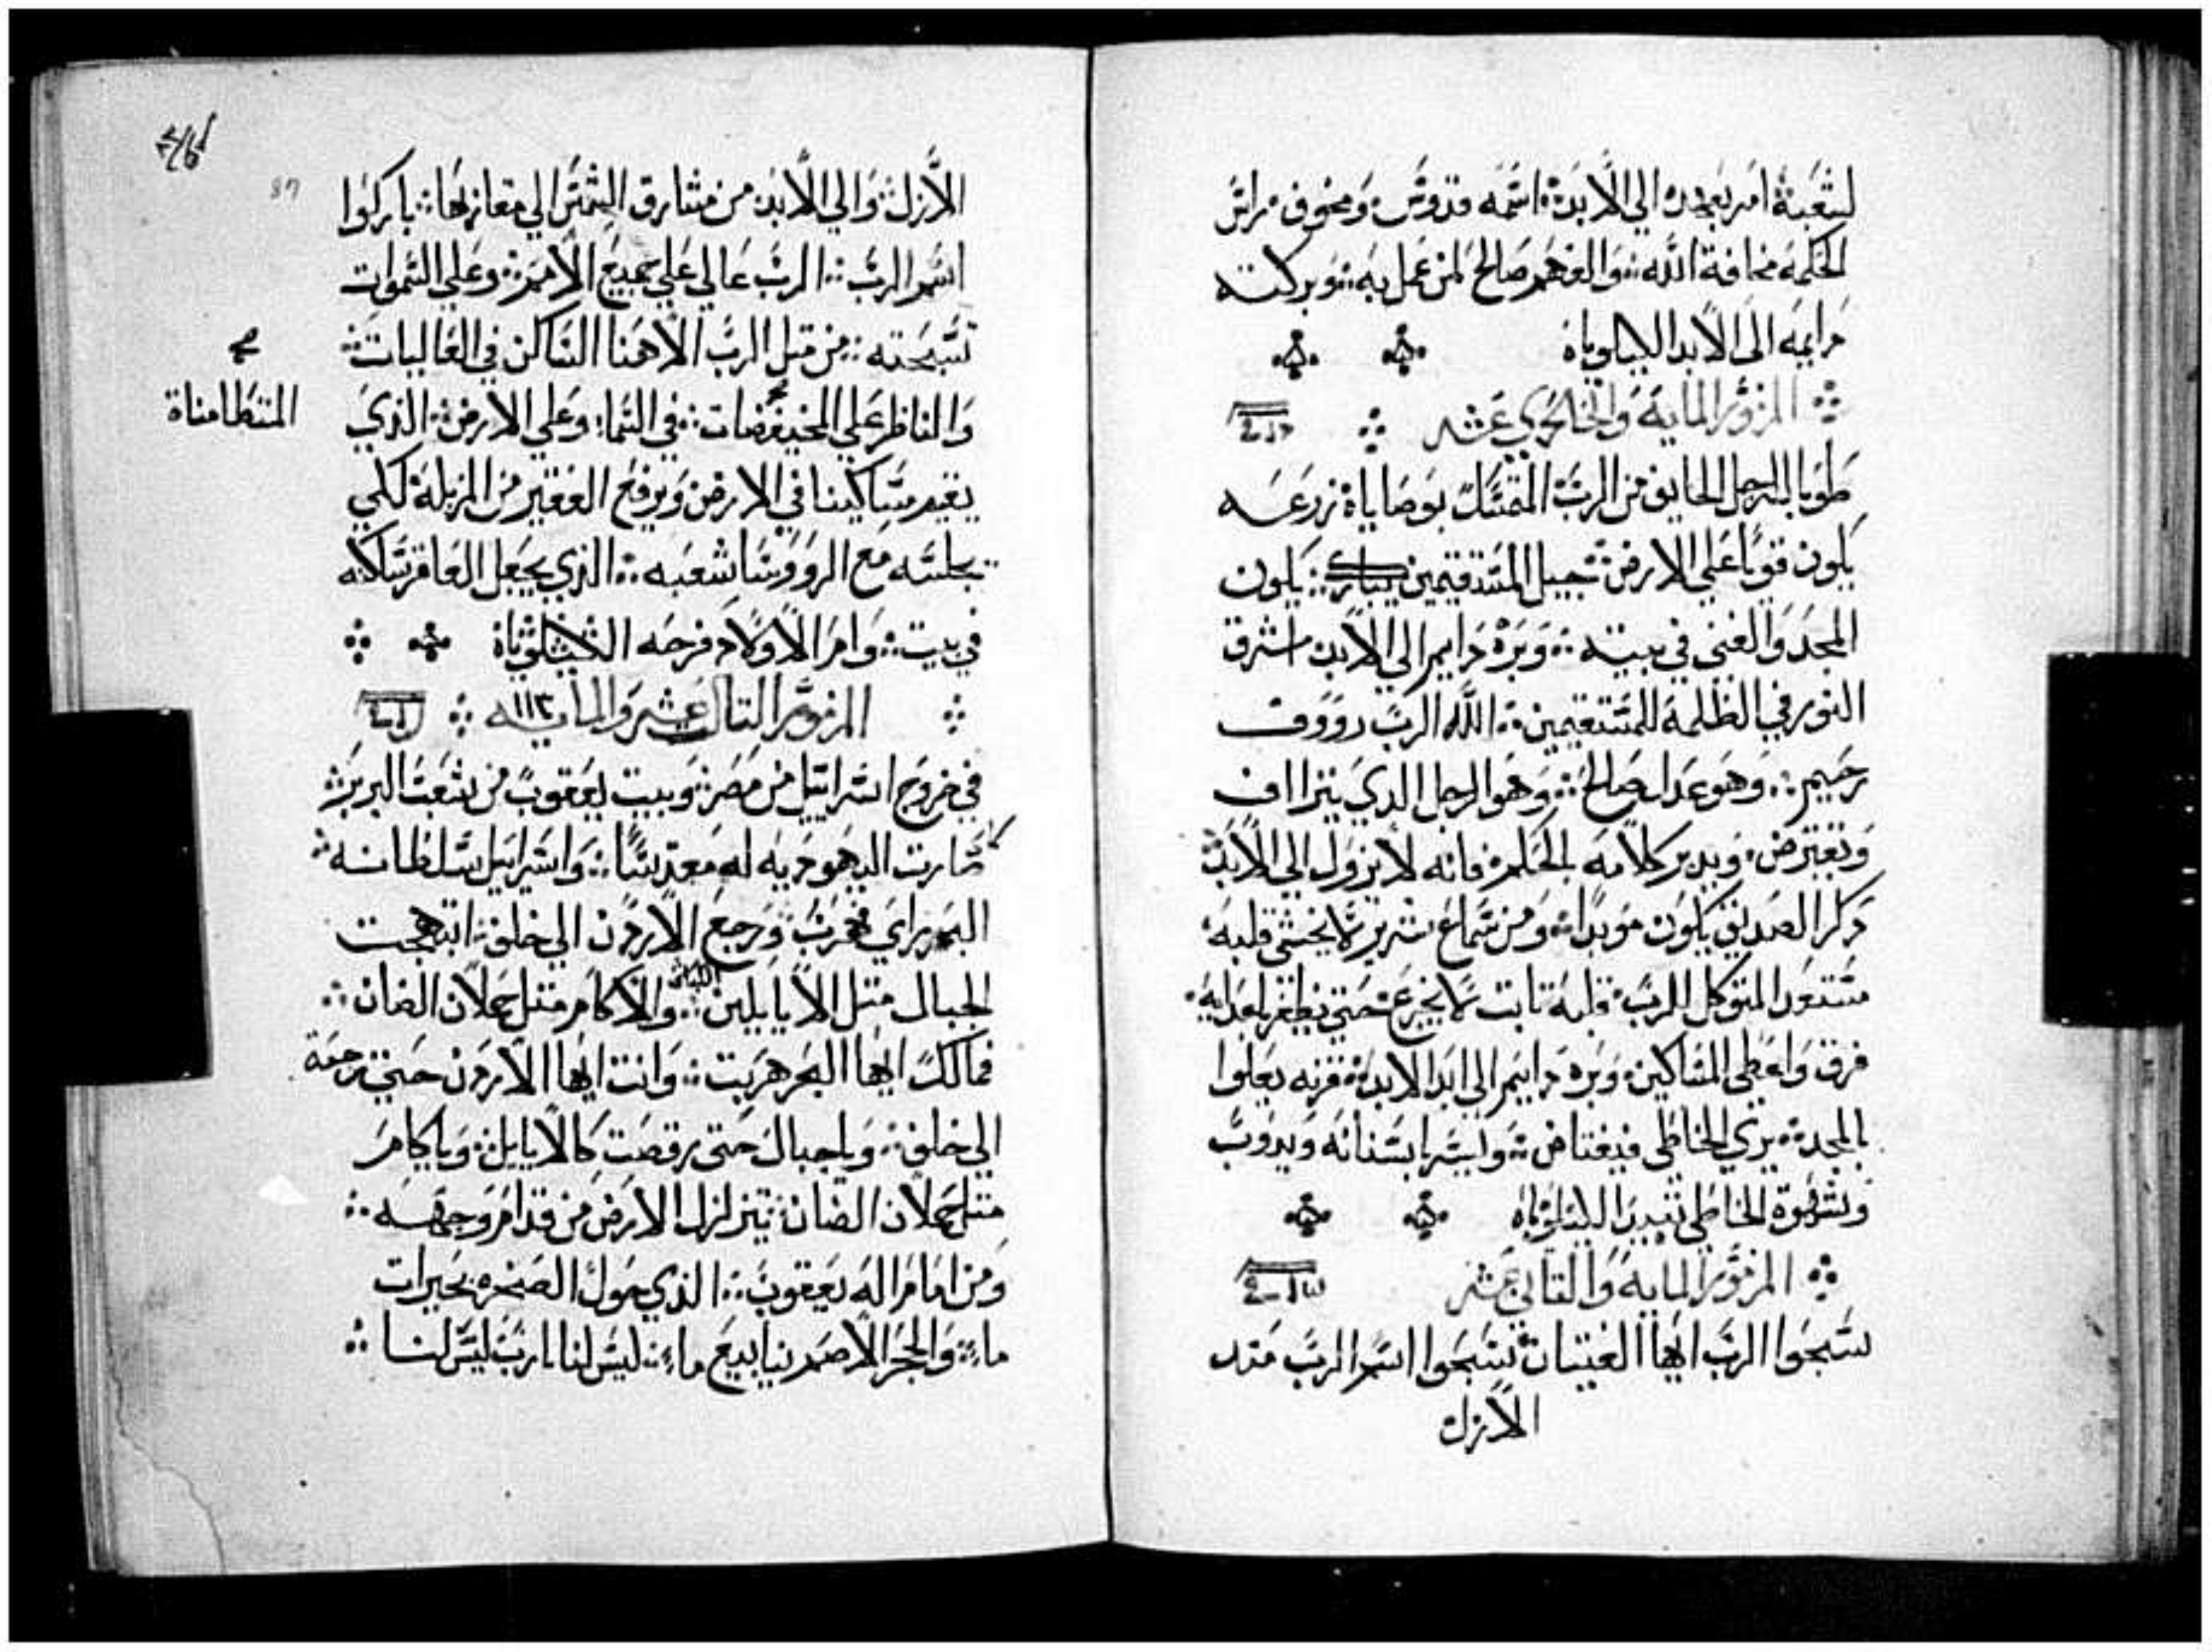 لشعبة امر بعهده الي الابد اسمه قدوس ومخوف راس
الحكمه مخافة الله والفهم صالح لمن عمل به وبركته
دايمه الى الابد الليلوياه
المزمور المايه والحادي عشر
طوبا للرجل الخايف من الرب المتمسك بوصاياه زرعه
يكون قويا علي الارض جيل المستقيمين يبارك يكون
المجد والغني في بيته وبره دايم الي الابد اشرق
النور في الظلمه للمستقيمين الله الرب رووف
رحيم وهو عدل صالح وهو الرجل الدي يتراف
ويقترض ويدبر كلامه بالحكم فانه لا يزول الي الابد
دكر الصديق يكون موبدا ومن سماع شرير لا يخشي قلبه
مستعد المتوكل للرب قلبه تابت لا يجزع حتي يظفر باعدايه
فرق واعطي المساكين وبره دايم الي ابد الابد قرنه يعلوا
بالمجد يري الخاطي فيغتاض واسرا بسنانه ويدوب
وشهوة الخاطي تبيد الليلوياه
المزمور المايه والتاني عشر
سبحوا الرب ايها الفتيان سبحوا اسم الرب مند
الازل
الازل والي الابد من مشارق الشمس الي مغاربها باركوا
اسم الرب الرب عالي علي جميع الامم وعلي السموات
تسبحته من متل الرب الاهنا الساكن في العاليات
والناظر علي المخيفضات في السما وعلي الارض الذي
المتطامناة
يقيم مساكينا في الارض ويرفع الفقير من المزبلة لكي
يجلسه مع الرووسا شعبه الذي يجعل العاقر ساكنه
في بيت وام الاولاد فرحه الليلوياة
المزمور التالت عشر والمايه ١١٣
في خروج اسراييل من مصر وبيت يعقوب من شعب البربر
صارت اليهوديه له مقدسا واسراييل سلطانه
البحر راي فهرب ورجع الاردن الي خلف ابتهجت
الجبال متل الايايلين والاكام متل حملان الضان
فما لك ايها البحر هربت وانت ايها الاردن حتي رجعة
الي خلف ويا جبال حتى رقصت كالايايل ويا كام
متل حملان الضان تتزلزل الارض من قدام وجهه
ومن امام اله يعقوب الذي حول الصخره بحيرات
ماء والحجر الاصم ينابيع ماء ليس لنا يارب ليس لنا